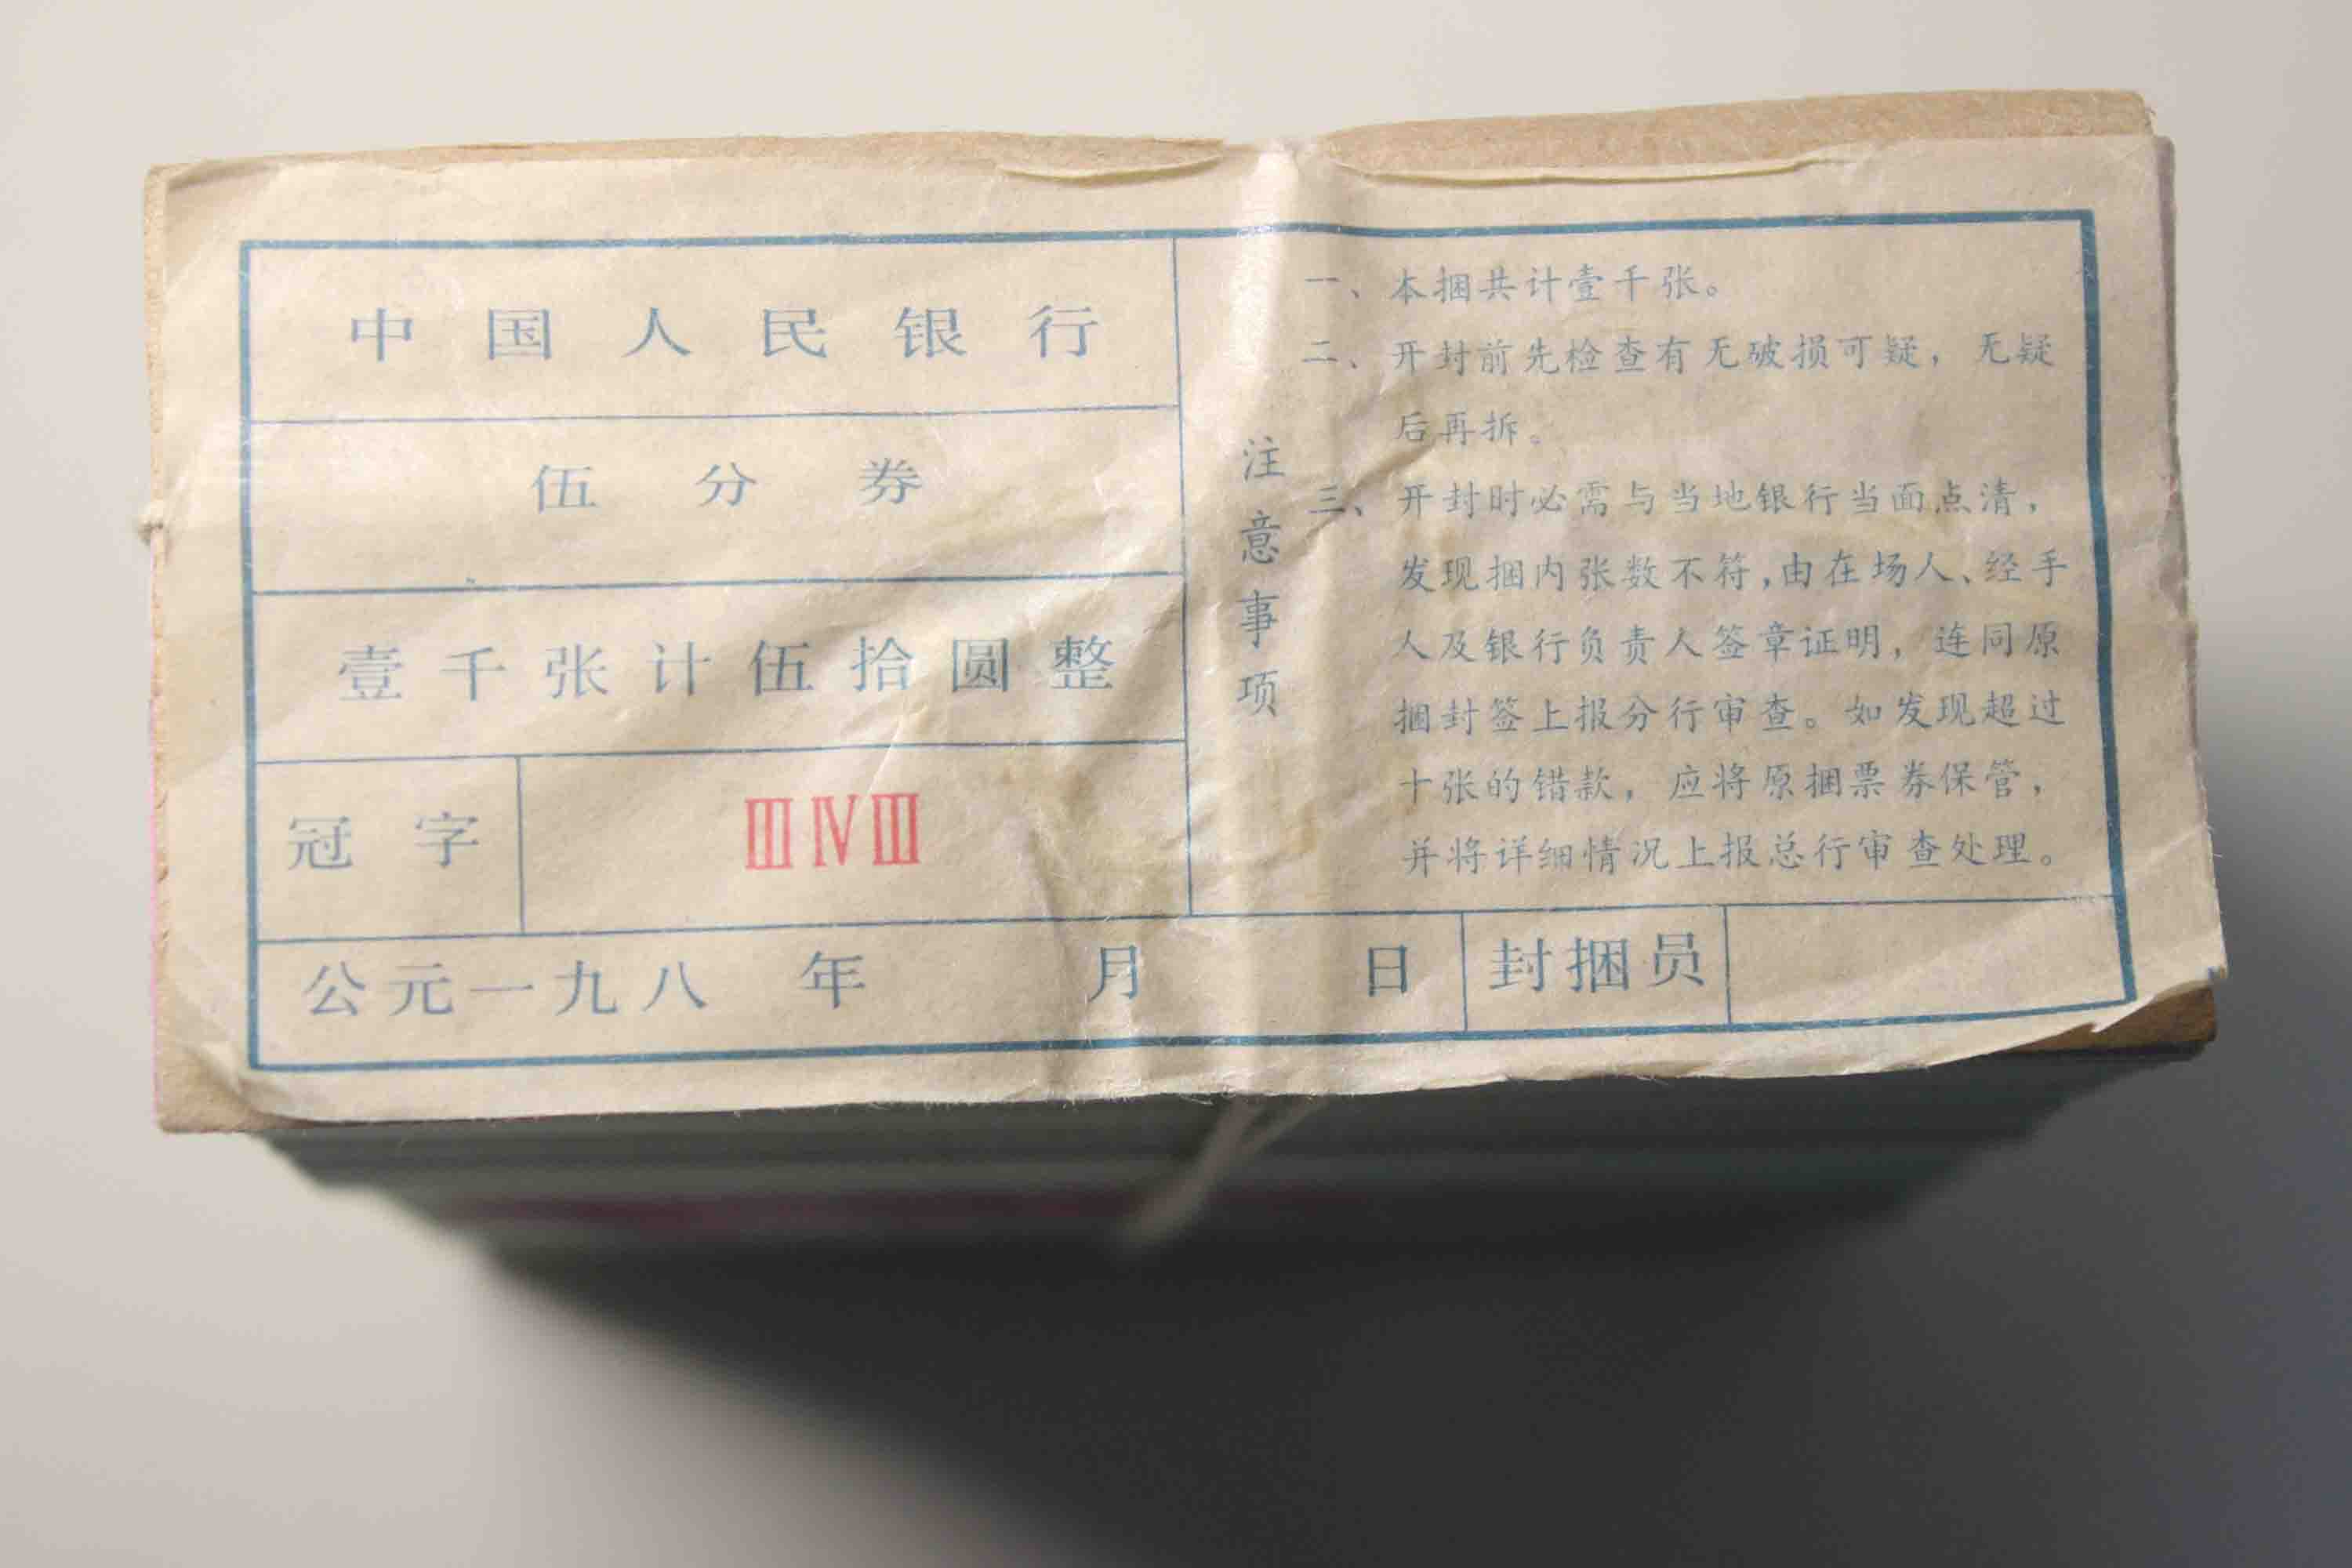 中国人民银行
伍分券
壹千张计伍拾圆整
冠字 ⅢⅣⅢ
注意事项
一、本捆共计壹千张。
二、开封前先检查有无破损可疑，无疑
后再拆。
三、开封时必需与当地银行当面点清，
发现捆内张数不符，由在场人、经手
人及银行负责人签章证明，连同原
捆封签上报分行审查。如发现超过
十张的错款，应将原捆票券保管，
并将详细情况上报总行审查处理。
公元一九八 年 月 日 封捆员